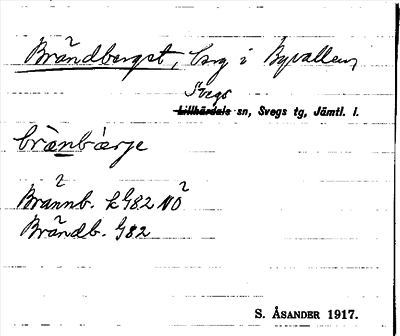 Brändberget, berg i Byvallen
Svegs
Lillhärdals sn, Svegs tg, Jämtl. l.
brànbàrje
Brannb. k G82 NO
Brändb. G82
S. ÅSANDER 1917.